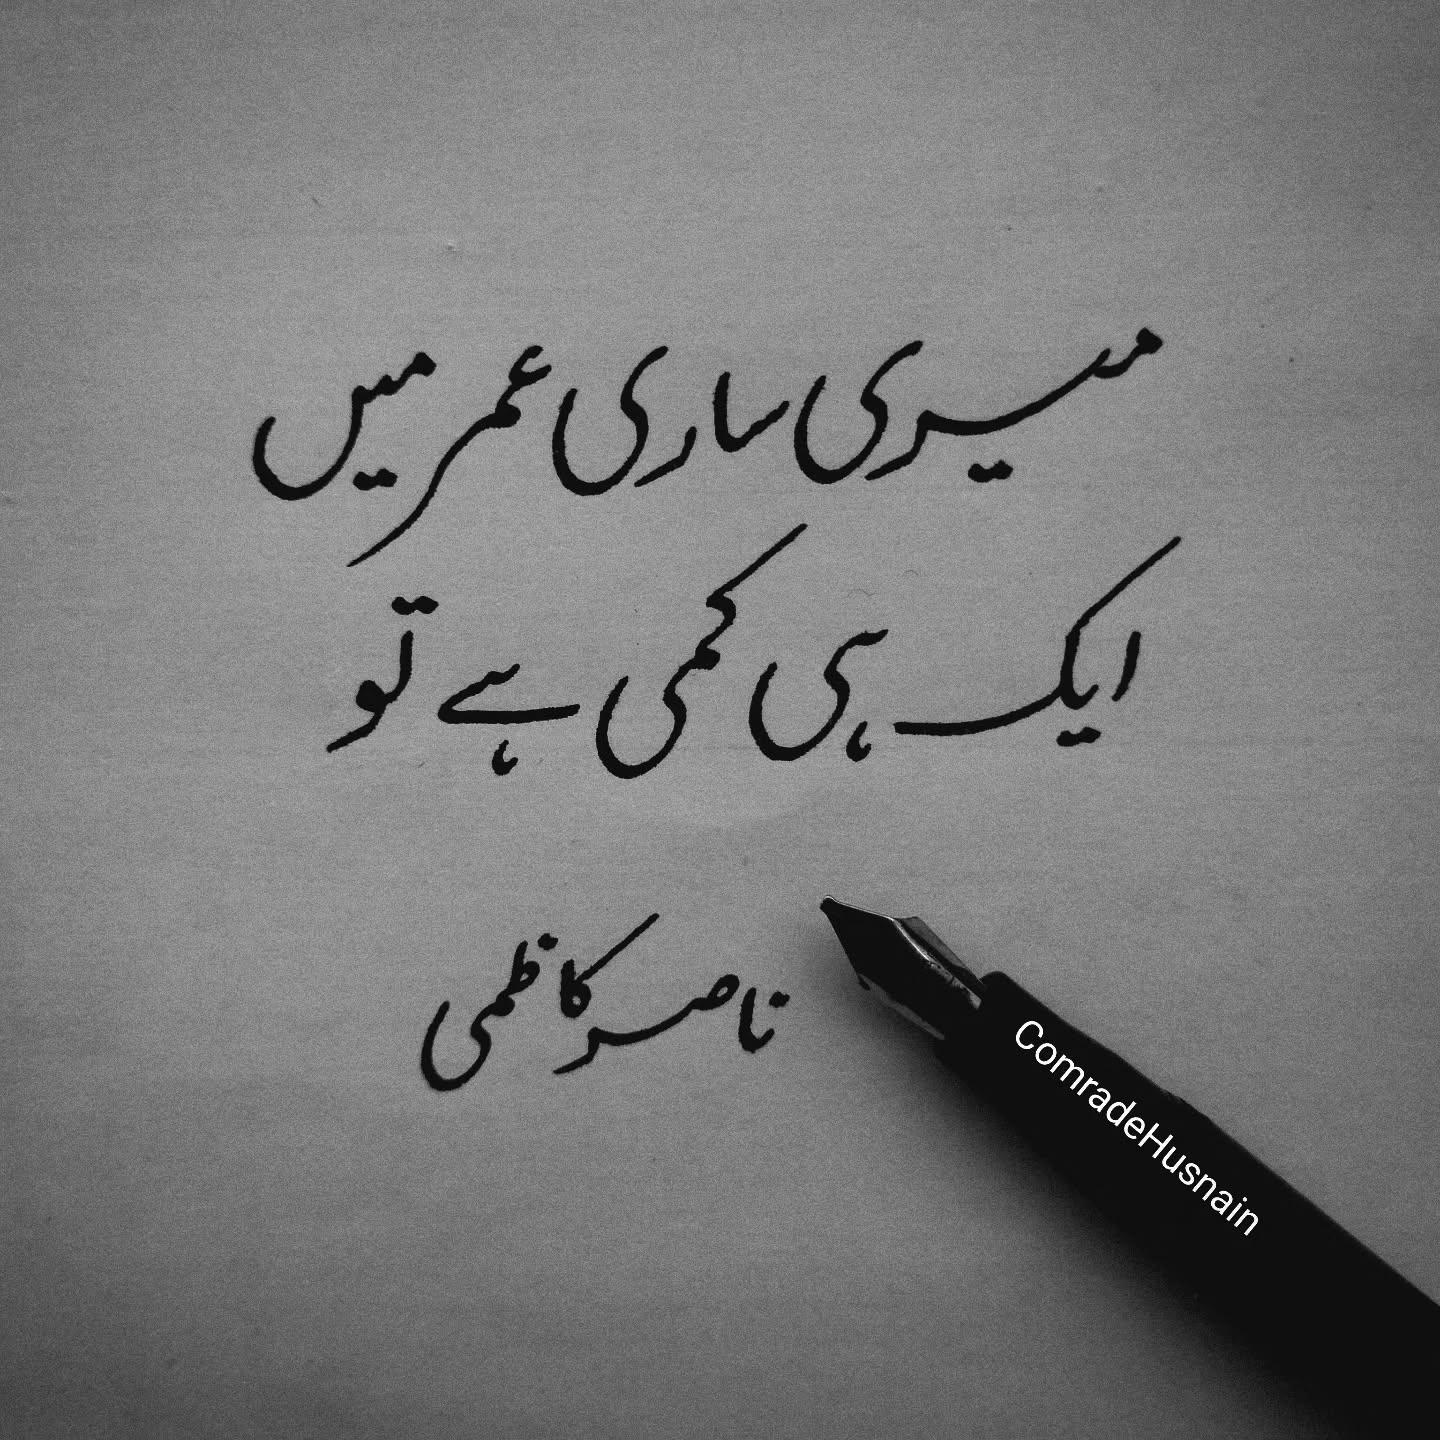 میری ساری عمر میں
ایک ہی کمی ہے تو
ناصر کاظمی
ComradeHusnain